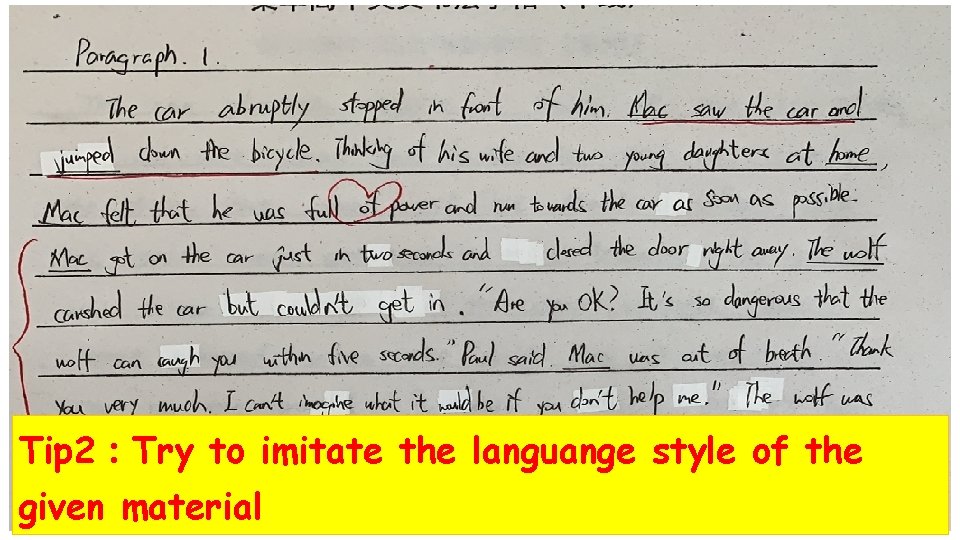 Paragraph. 1.
The car abruptly stopped in front of him. Mac saw the car and
jumped down the bicycle. Thinking of his wife and two young daughters at home,
Mac felt that he was full of power and run towards the car as soon as possible.
Mac got on the car just in two seconds and closed the door right away. The wolf
carshed the car but couldn't get in. "Are you OK? It's so dangerous that the
wolf can caugh you within five seconds." Paul said. Mac was out of breath. "Thank
you very much. I can't imagine what it would be if you don't help me." The wolf was
Tip2：Try to imitate the languange style of the
given material